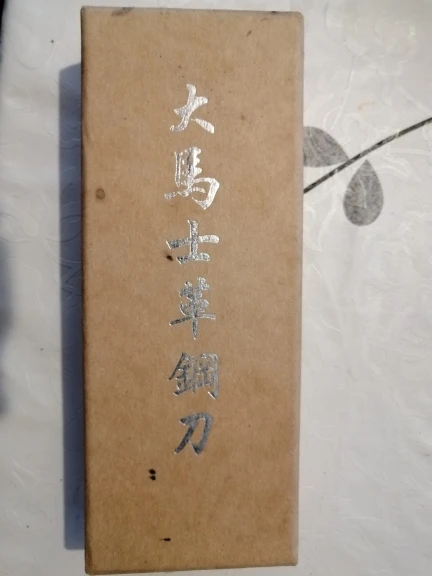 大馬士革鋼刀